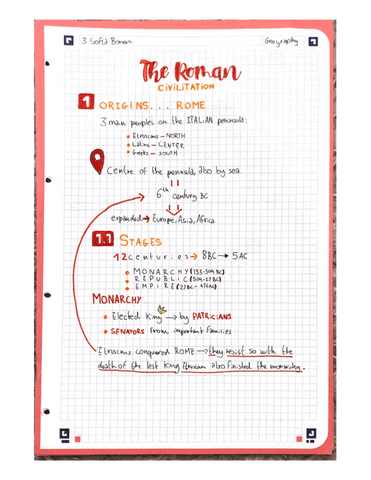 3 Sofia Bonon
Geography
The Roman
CIVILITATION
1 ORIGINS... ROME
3 main peoples on the ITALIAN peninsula:
Etruscans - NORTH
Latins - CENTER
Greeks - SOUTH
Centre of the peninsula, also by sea.
6th century BC
expanded → Europe, Asia, Africa
1.1 STAGES
12 centuries → 8BC → 5AC
MONARCHY (753-509 BC)
REPUBLIC (509-27 BC)
EMPIRE (27BC - 476AC)
MONARCHY
Elected King → by PATRICIANS
SENATORS from important families
Etruscans conquered ROME → they resist so with the
death of the last King Etruscan also finished the monarchy.